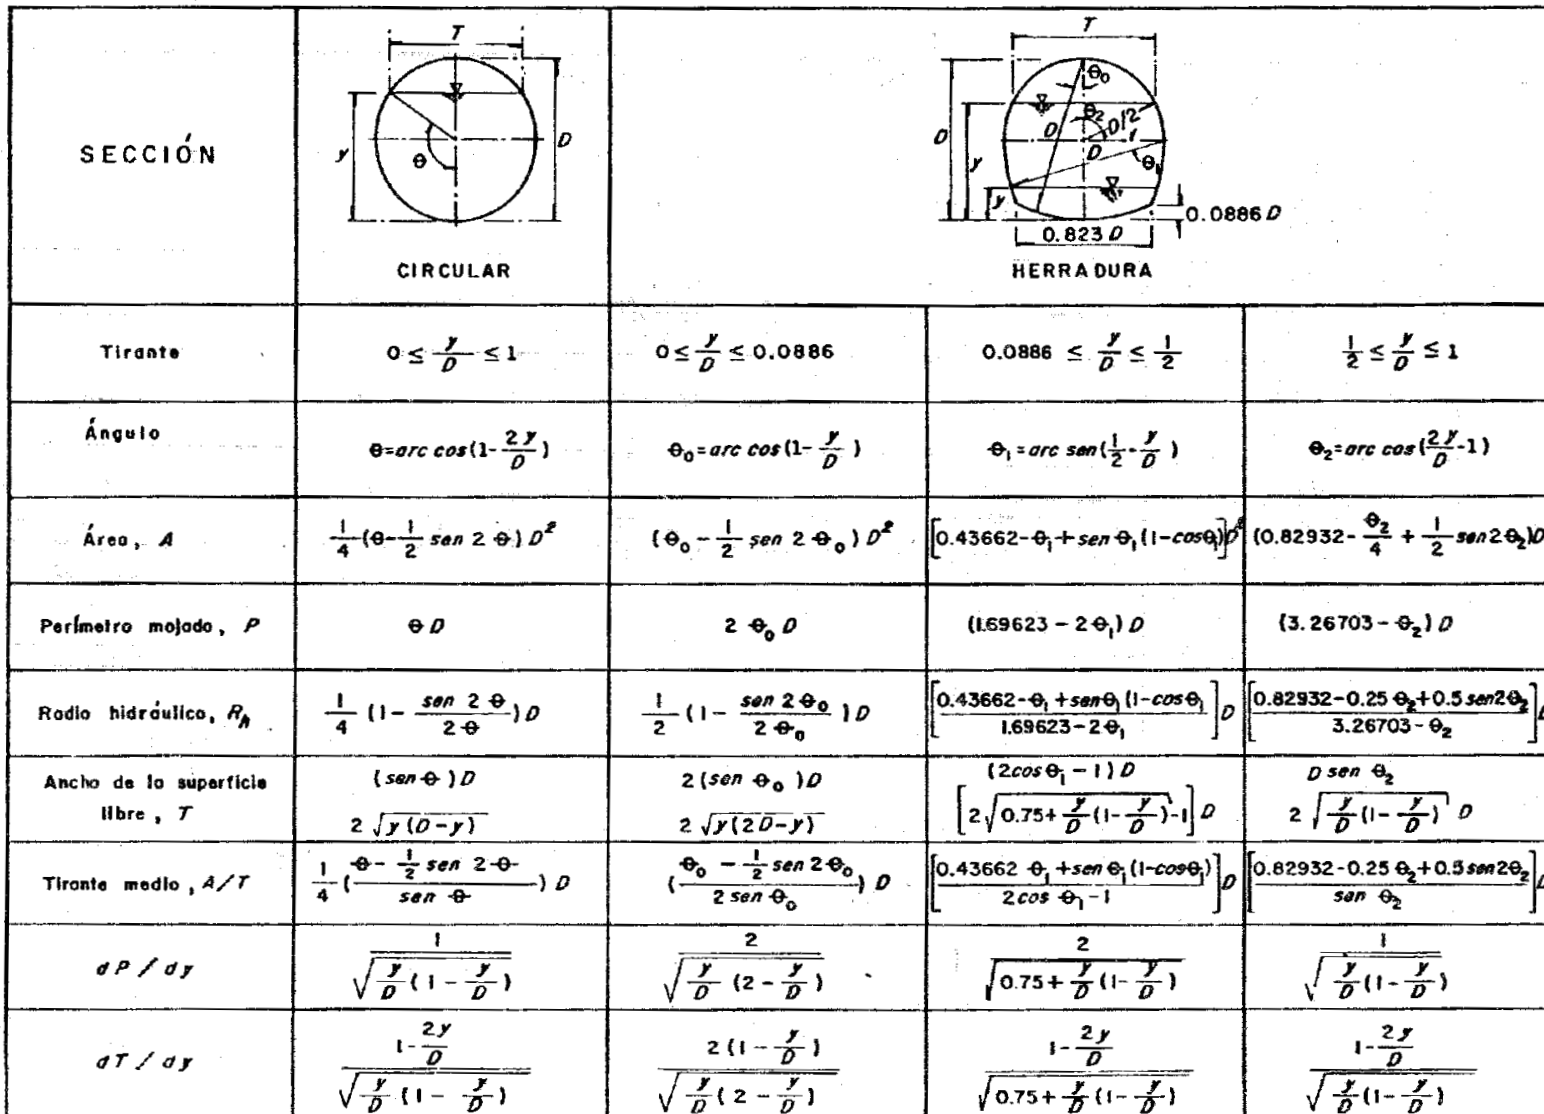 SECCIÓN
T
y
θ
D
CIRCULAR
T
D
y
y
θ₀
θ₂
D/2
D
D
θ₁
0.0886 D
0.823 D
HERRADURA
Tirante
0 ≤ y/D ≤ 1
0 ≤ y/D ≤ 0.0886
0.0886 ≤ y/D ≤ 1/2
1/2 ≤ y/D ≤ 1
Ángulo
θ=arc cos(1-2y/D)
θ₀=arc cos(1-y/D)
θ₁=arc sen(1/2-y/D)
θ₂=arc cos(2y/D-1)
Área, A
1/4 (θ-1/2 sen 2 θ) D²
(θ₀ - 1/2 sen 2 θ₀) D²
[0.43662-θ₁+sen θ₁(1-cosθ₁)]D²
(0.82932-θ₂/4 + 1/2 sen2θ₂)D
Perímetro mojado, P
θ D
2 θ₀ D
(1.69623 - 2θ₁) D
(3.26703 - θ₂) D
Radio hidráulico, Rₕ
1/4 (1 - sen 2 θ/2 θ) D
1/2 (1 - sen 2 θ₀/2 θ₀) D
[0.43662-θ₁+senθ₁(1-cosθ₁/1.69623-2θ₁] D
[0.82932-0.25 θ₂+0.5 sen2θ₂/3.26703-θ₂] D
Ancho de la superficie
libre, T
(sen θ) D
2 √y(D-y)
2 (sen θ₀) D
2 √y(2D-y)
(2cos θ₁ - 1) D
[2√0.75+y/D(1-y/D)-1] D
D sen θ₂
2 √y/D(1-y/D) D
Tirante medio, A/T
1/4 (θ- 1/2 sen 2 θ/sen θ) D
(θ₀ - 1/2 sen 2θ₀/2 sen θ₀) D
[0.43662 -θ₁+sen θ₁(1-cosθ₁)/2cos θ₁-1] D
[0.82932-0.25 θ₂+0.5 sen2θ₂/sen θ₂] D
dP / dy
1/√y/D (1 - y/D)
2/√y/D (2 - y/D)
2/√0.75+y/D(1-y/D)
1/√y/D(1-y/D)
dT / dy
1-2y/D/√y/D (1 - y/D)
2 (1 - y/D)/√y/D (2 - y/D)
1-2y/D/√0.75+y/D(1-y/D)
1-2y/D/√y/D(1-y/D)